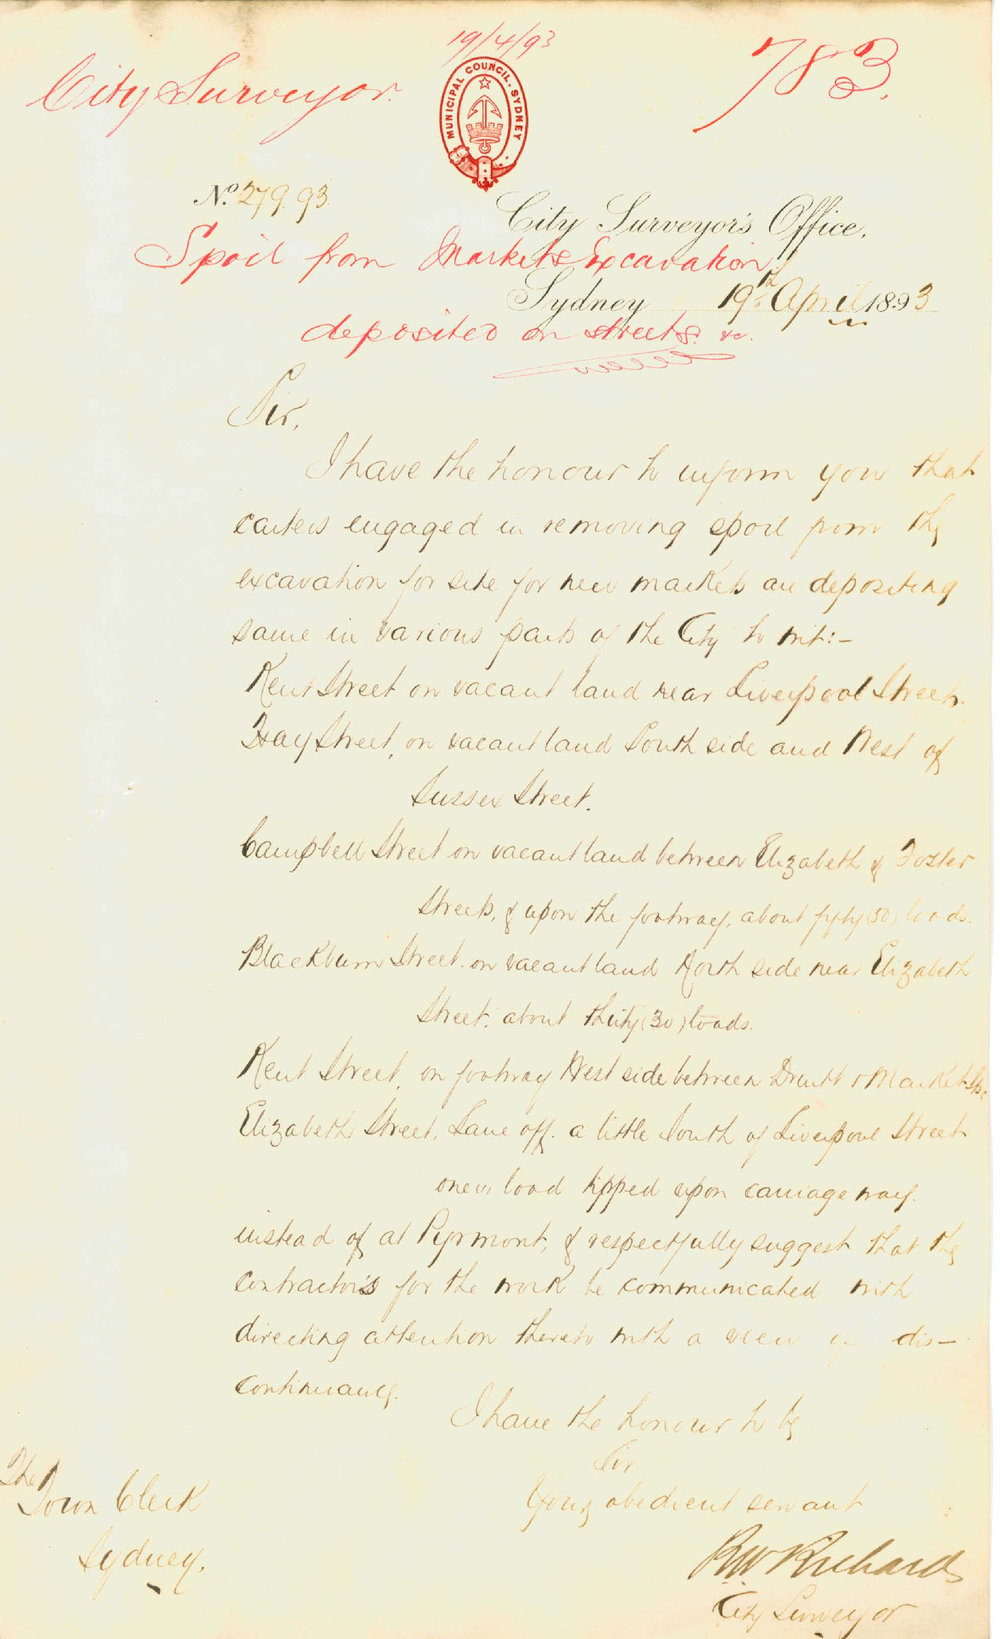 19/4/93
City Surveyor.
783.
MUNICIPAL COUNCIL. SYDNEY
No. 279.93.
City Surveyor's Office,
Spoil from Markets Excavation
Sydney 19th April 1893
deposited on streets. &c.
Sir,
I have the honour to inform you that
carters engaged in removing spoil from the
excavation for site for new markets are depositing
same in various parts of the City to wit:-
Kent Street on vacant land near Liverpool Street.
Hay Street, on vacant land South side and West of
Sussex Street.
Campbell Street on vacant land between Elizabeth & Foster
Streets, & upon the footway, about fifty (50) loads.
Blackburn Street. on vacant land North side near Elizabeth
Street, about thirty (30) loads.
Kent Street, on footway West side between Druitt & Market Sts.
Elizabeth Street, Lane off. a little South of Liverpool Street
one load tipped upon carriage way.
instead of at Pyrmont, & respectfully suggest that the
contractors for the work be communicated with
directing attention thereto with a view of dis-
continuance.
I have the honour to be
Sir
Your obedient servant
R W Richards
City Surveyor
The
Town Clerk
Sydney.